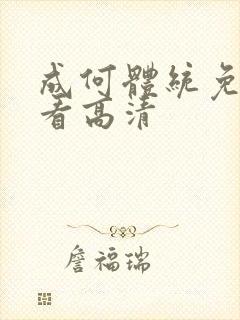 成何體統免
看高清
詹福瑞